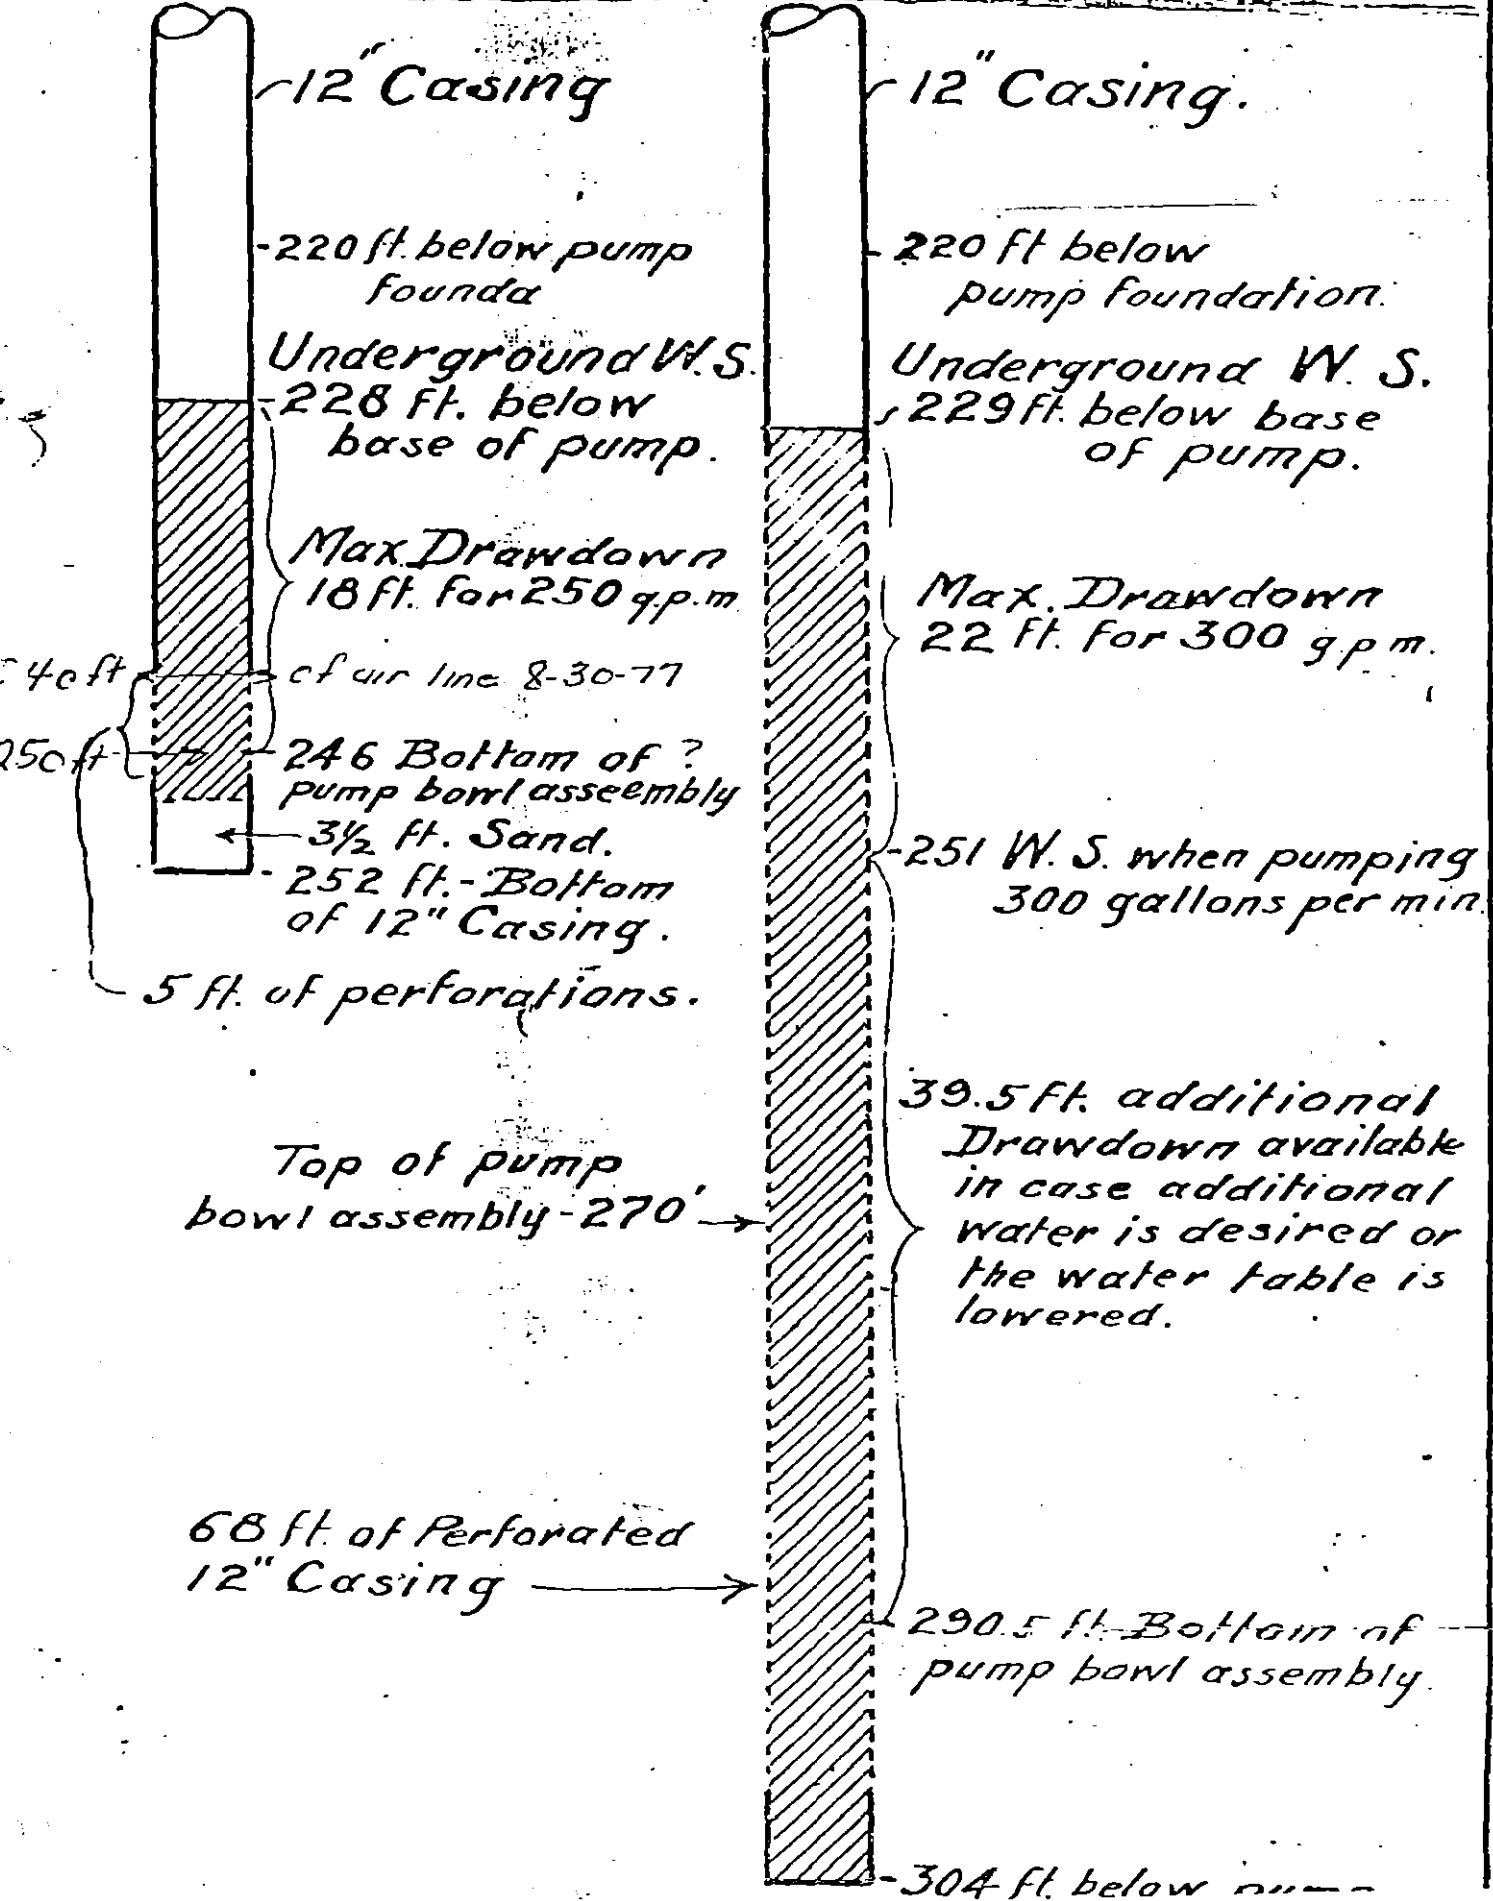 12" Casing
220 ft. below pump
founda
Underground W.S.
228 ft. below
base of pump.
Max. Drawdown
18 ft. for 250 g.p.m
40 ft
of air line 8-30-77
250 ft
246 Bottom of ?
pump bowl asseembly
3½ ft. Sand.
252 ft. - Bottom
of 12" Casing.
5 ft. of perforations.
Top of pump
bowl assembly - 270'
68 ft. of Perforated
12" Casing
12" Casing.
220 ft below
pump foundation.
Underground W. S.
229 ft. below base
of pump.
Max. Drawdown
22 ft. for 300 g.p.m.
251 W. S. when pumping
300 gallons per min.
39.5 ft. additional
Drawdown available
in case additional
water is desired or
the water table is
lowered.
290.5 ft. Bottom of
pump bowl assembly.
304 ft. below